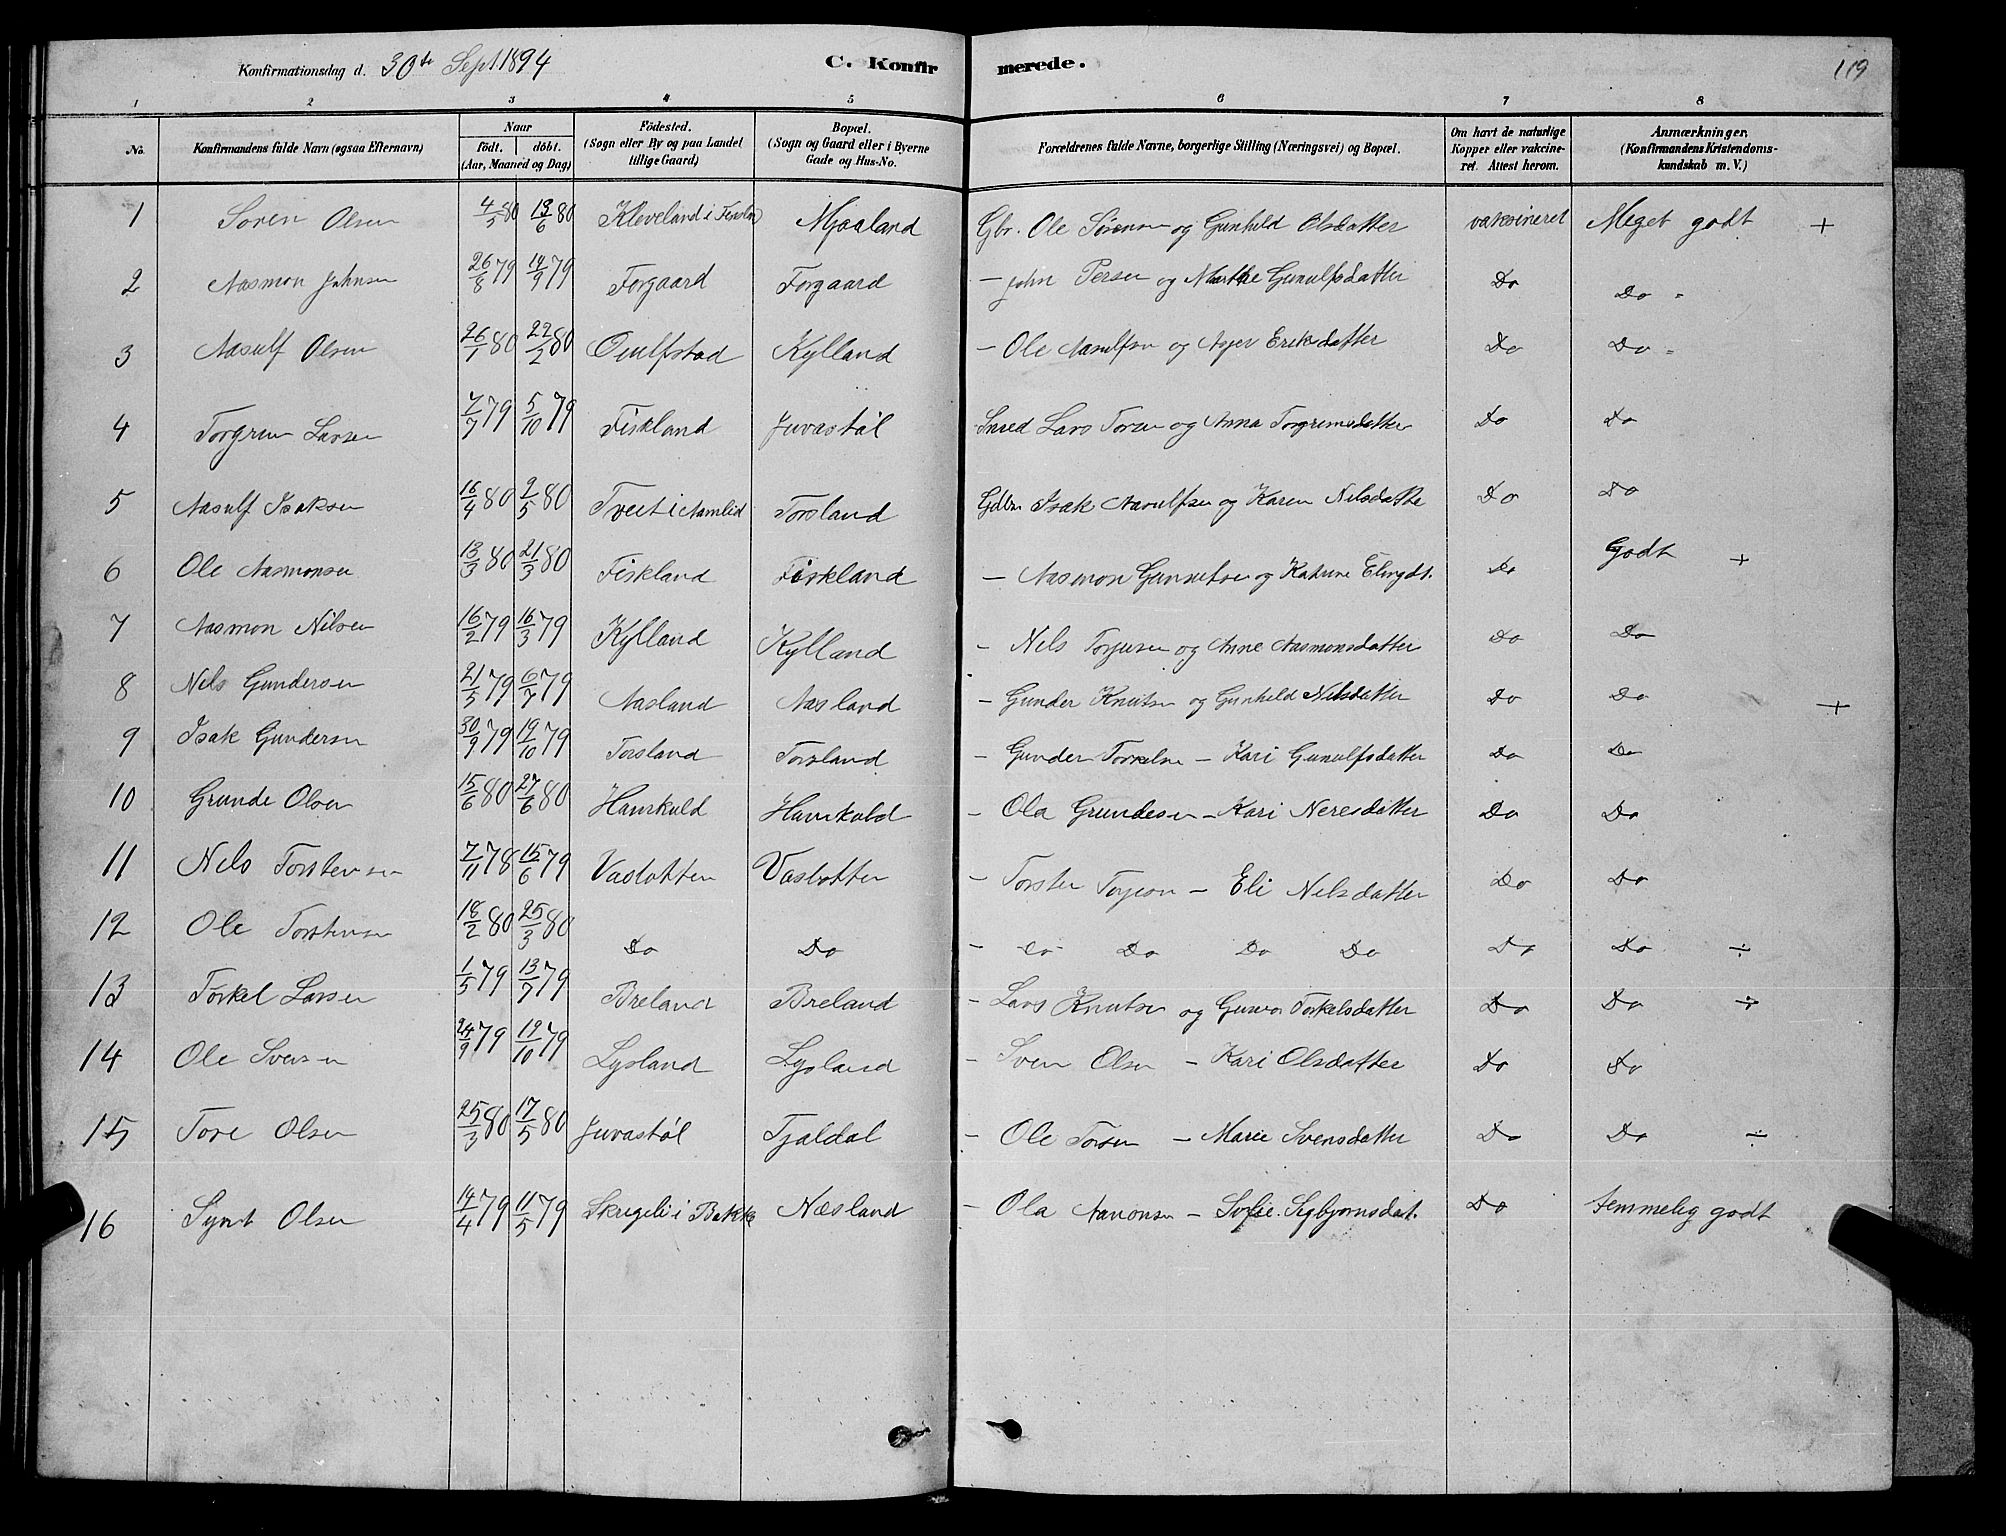 Konfirmationsdag d. 30te Sept 1894 C. Konfirmerede. 119
1 2 3 4 5 6 7 8
No. Konfirmandens fulde Navn (ogsaa Efternavn) Naar födt. döbt. (Aar, Maaned og Dag) Födested. (Sogn eller By og paa Landet tillige Gaard) Bopæl. (Sogn og Gaard eller i Byerne Gade og Hus-No. Forældrenes fulde Navne, borgerlige Stilling (Næringsvei) og Bopæl. Om havt de naturlige Kopper eller vakcineret. Attest herom. Anmærkninger. (Konfirmandens Kristendomskundskab m. V.)
1 Soren Olsen 4/5 80 13/6 80 Kleveland i Mjaaland Gbr. Ole Sörensen og Gunhild Olsdatter vaksineret Meget godt +
2 Aasmon Johnsen 26/8 79 14/9 79 Forgaard Forgaard – John Persen og Marthe Gunulfsdatter Do Do
3 Aasulf Olsen 26/1 80 22/2 80 Kylland – Ole Aasulfsen og Asjer Eriksdatter Do Do
4 Torgrim Larsen 7/7 79 5/10 79 Fiskland Juvastøl Lars Torsen og Anna Torgrimsdatter Do Do
5 Aasulf Isaksen 16/4 80 2/5 80 Tveit i Aamlid Torsland Gdbr Isak Aasulfsen og Karen Nilsdatte Do Do
6 Ole Aasmonsen 13/3 80 21/3 80 Fiskland Fiskland – Aasmon og Katrine Elingdt. Do Godt +
7 Aasmon Nilsen 16/2 79 16/3 79 Kylland Kylland – Nels Torjusen og Anne Aasmonsdatter Do Do
8 Nels Gundersen 21/5 79 6/7 79 Aasland Aasland – Gunder Knutsen og Gunhild Nilsdatter Do Do +
9 Isak Gundersen 30/9 79 19/10 79 Torsland Torsland – Gunder Torkelsen – Kari Gunulfsdatter Do Do
10 Grunde Olsen 15/6 80 27/6 80 Haurkuld Haurkuld – Ola Grundesen – Kari Neresdatter Do Do
11 Nels Torstensen 7/11 78 15/6 79 Vaslotten Vaslotten – Torsten – Eli Nelsdatter Do Do
12 Ole Torstensen 18/2 80 25/3 80 Do Do – Do Do Do Do Do Do ÷
13 Torkel Larsen 1/5 79 13/7 79 Breland Breland – Lars Knutsen og Gunvor Torkelsdatter Do Do ÷
14 Ole Svensen 24/9 79 19/10 79 Lysland Lysland – Sven Olsen – Kari Olsdatter Do Do
15 Tore Olsen 25/3 80 17/5 80 Juvastøl Tjaldal – Ole Torsen – Marie Svensdatter Do Do ÷
16 Olsen 14/4 79 11/5 79 Skregeli i Bakke Næsland – Ola Aanonsen – Sofie Sigbjornsdat. Do temmelig godt